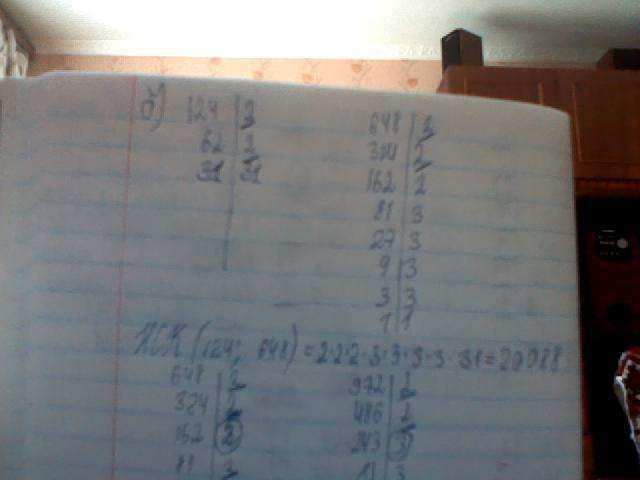 б) 124 | 2
62 | 2
31 | 31
648 | 2
324 | 2
162 | 2
81 | 3
27 | 3
9 | 3
3 | 3
1 | 1
НОК (124; 648) = 2·2·2·3·3·3·3·31=20088
648 | 2
324 | 2
162 | 2
81 | 3
972 | 2
486 | 2
243 | 3
81 | 3